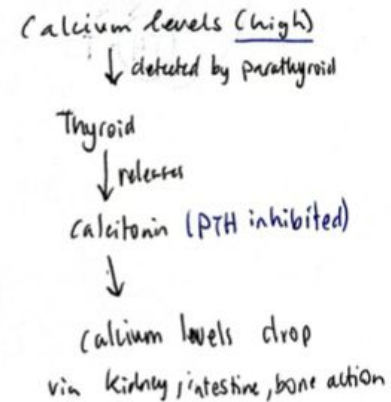 Calcium levels (high)
↓ detected by parathyroid
Thyroid
↓ releases
Calcitonin (PTH inhibited)
↓
Calcium levels drop
via kidney, intestine, bone action